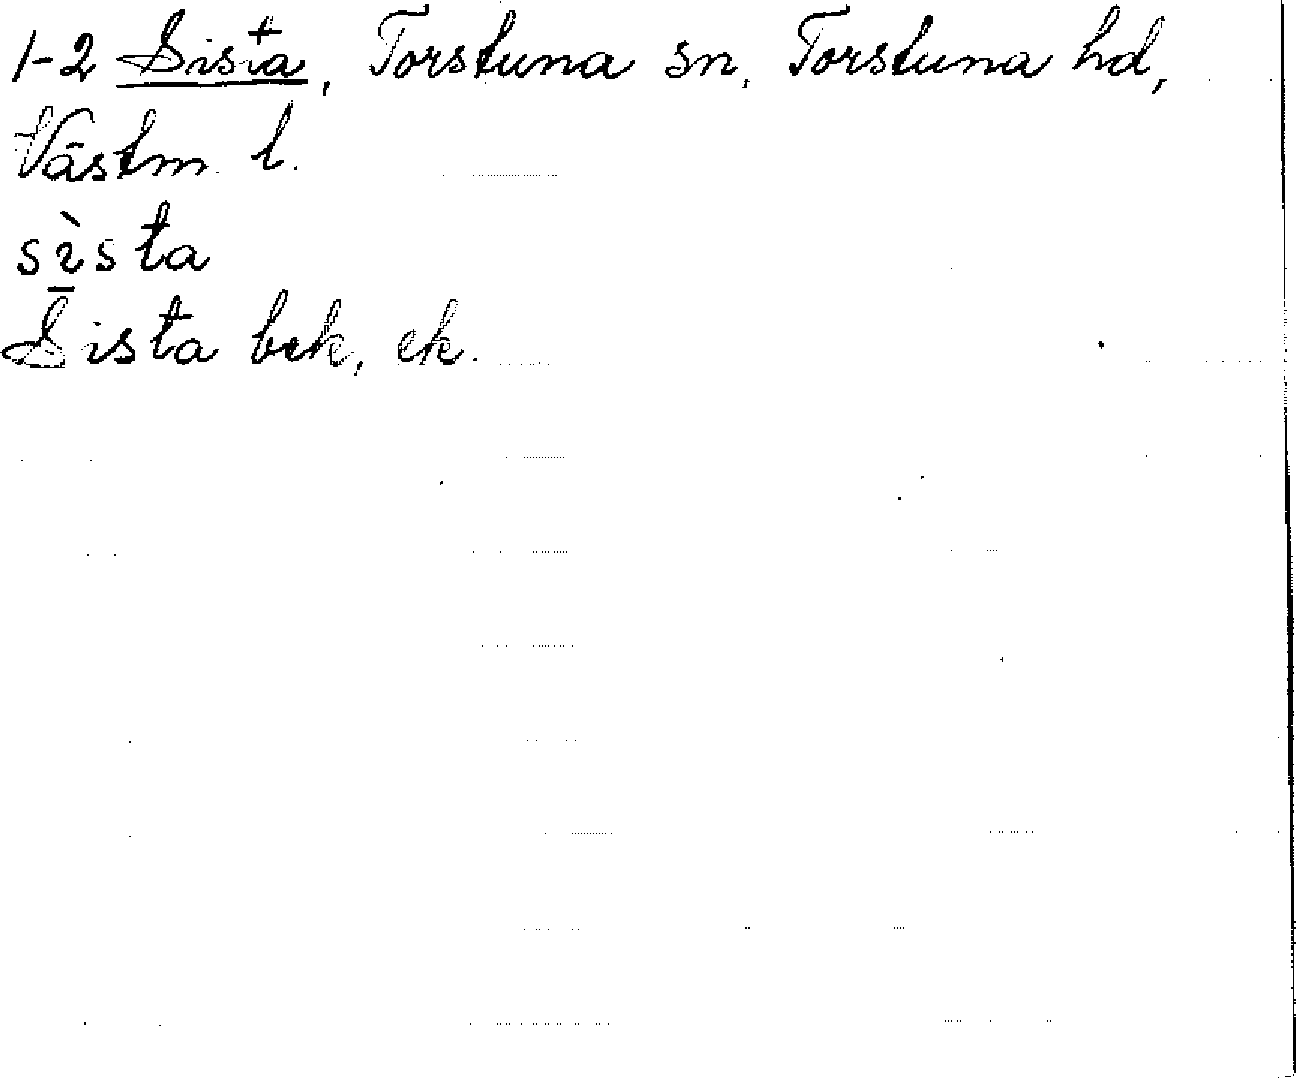 1-2 Sista, Torstuna sn, Torstuna hd,
Västm. l.
sı̱̀sta
Sista bek, ek.